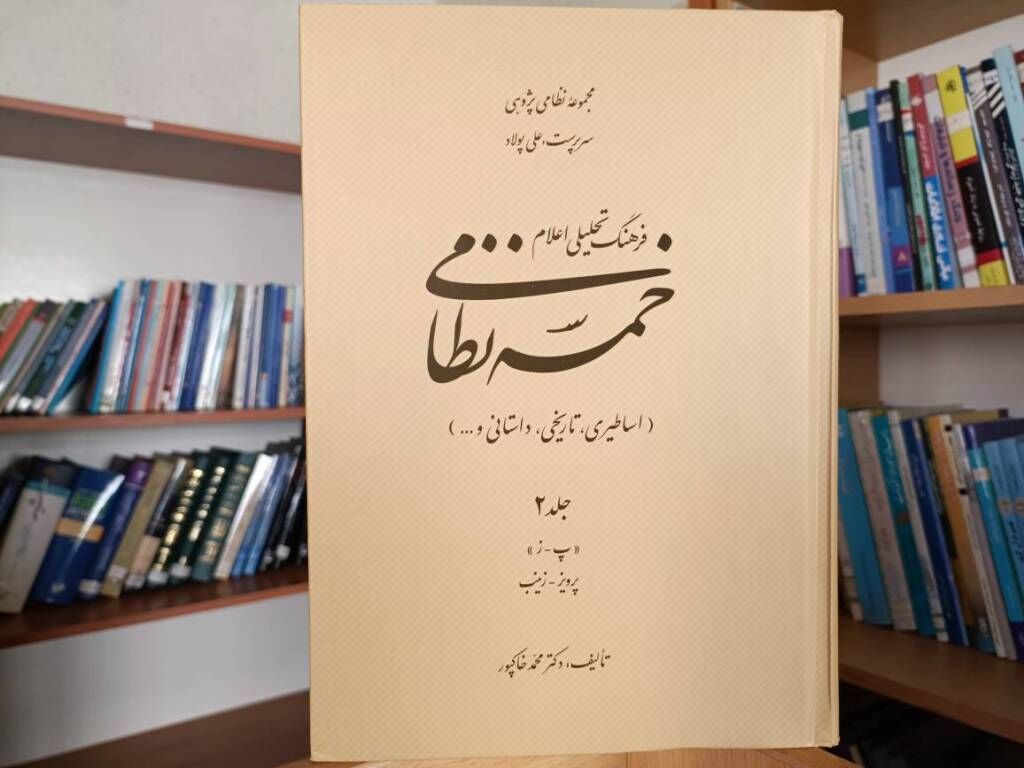 مجموعهٔ نظامی پژوهی
سرپرست، علی پولاد
فرهنگ تحلیلی اعلام
خمسه نظامی
( اساطیری، تاریخی، داستانی و ... )
جلد ۲
« پ - ز »
پرویز - زینب
تألیف، دکتر محمد خاکپور